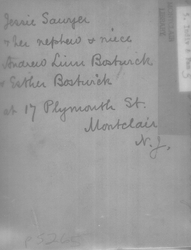 Jessie Sawyer
& her nephew & niece
Andrew Linn Bostwick
& Esther Bostwick
at 17 Plymouth St.
Montclair
N.J.